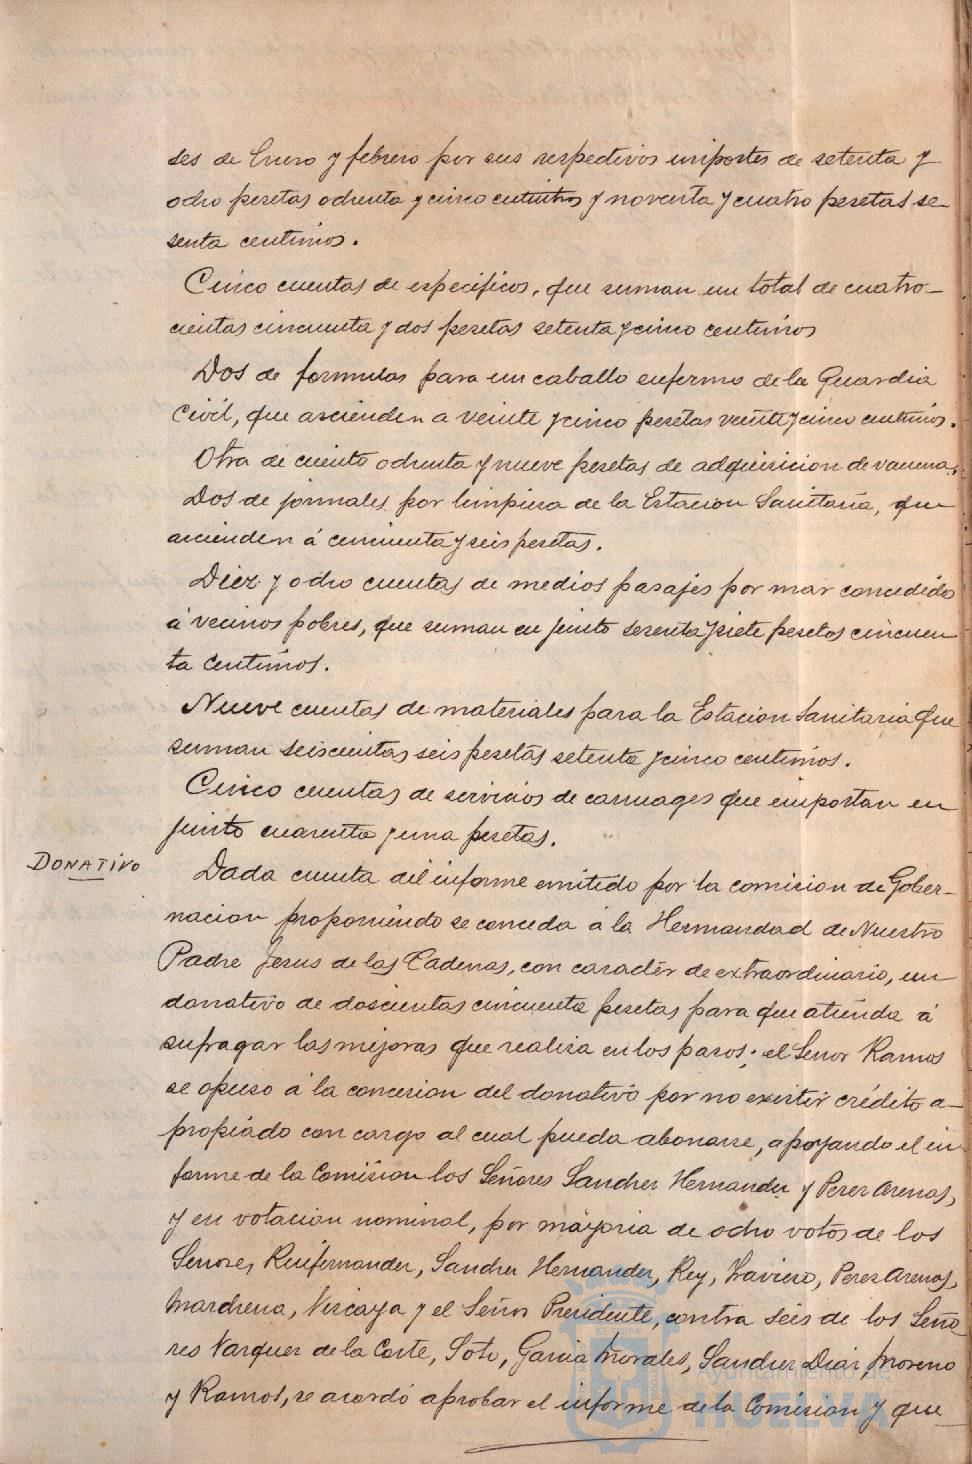 ses de Enero y febrero por sus respectivos importes de setenta y
ocho pesetas ochenta y cinco centimos y noventa y cuatro pesetas se-
senta centimos.
Cinco cuentas de especificos, que suman un total de cuatro-
cientas cincuenta y dos pesetas setenta y cinco centimos
Dos de formulas para un caballo enfermo de la Guardia
Civil, que ascienden a veinte y cinco pesetas veinte y cinco centimos.
Otra de ciento ochenta y nueve pesetas de adquisicion de vacuna.
Dos de jornales por limpieza de la Estacion Sanitaria, que
ascienden á cincuenta y seis pesetas.
Diez y ocho cuentas de medios pasajes por mar concedidos
á vecinos pobres, que suman en junto sesenta y siete pesetas cincuen
ta centimos.
Nueve cuentas de materiales para la Estacion Sanitaria que
suman seiscientas seis pesetas setenta y cinco centimos.
Cinco cuentas de servicios de carruages que importan en
junto cuarenta y una pesetas.
DONATIVO
Dada cuenta del informe emitido por la comision de Gober-
nacion proponiendo se conceda á la Hermandad de Nuestro
Padre Jesus de las Cadenas, con caracter de extraordinario, un
donativo de doscientas cincuenta pesetas para que atienda á
sufragar las mejoras que realiza en los pasos; el Señor Ramos
se opuso á la concesion del donativo por no existir crédito a-
propiado con cargo al cual pueda abonarse, apoyando el in-
forme de la Comision los Señores Sanchez Hernandez y Perez Arenas,
y en votacion nominal, por mayoria de ocho votos de los
Señores Ruifernandez, Sanchez Hernandez, Rey, Perez Arenas,
Marchena, Vizcaya y el Señor Presidente, contra seis de los Seño
res Vazquez de la Corte, Soto, Garcia Morales, Sanchez Diaz, Moreno
y Ramos, se acordó aprobar el informe de la Comision y que
Ayuntamiento de
HUELVA